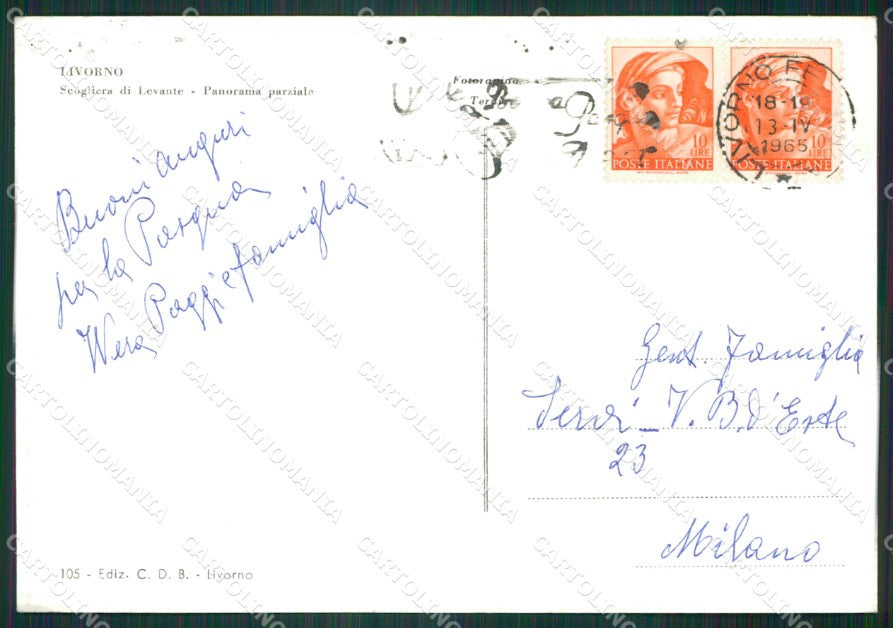 LIVORNO
Scogliera di Levante - Panorama parziale
Fotorapida
Terni
10
LIRE
POSTE ITALIANE
10
LIRE
POSTE ITALIANE
LIVORNO FE
18-19
13-IV
1965
Buoni auguri
per la Pasqua
Wera Poggi e famiglia
Gent. Famiglia
Servi - V. B. d'Este
23
Milano
105 - Ediz. C. D. B. - Livorno
CARTOLINOMANIA